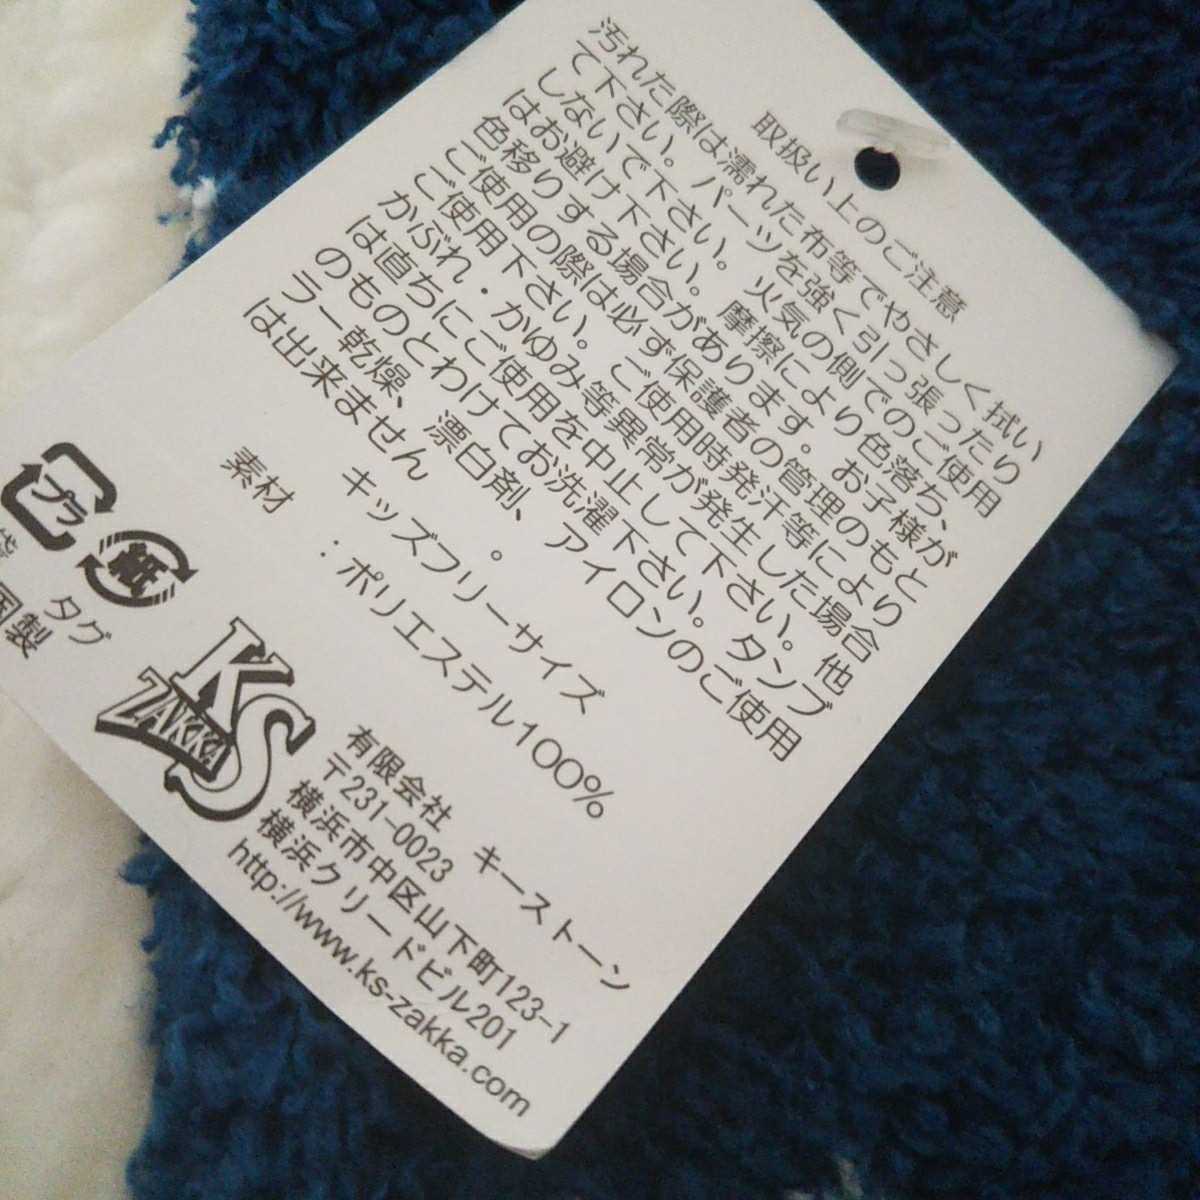 取扱い上のご注意
汚れた際は濡れた布等でやさしく拭い
て下さい。パーツを強く引っ張ったり
しないで下さい。火気の側でのご使用
はお避け下さい。摩擦により色落ち、
色移りする場合があります。お子様が
ご使用の際は必ず保護者の管理のもと
ご使用下さい。ご使用時発汗等により
かぶれ・かゆみ等異常が発生した場合
は直ちにご使用を中止して下さい。他
のものとわけてお洗濯下さい。タンブ
ラー乾燥、漂白剤、アイロンのご使用
は出来ません。
キッズフリーサイズ
素材 :ポリエステル100%
プラ 紙
袋 タグ
国製
KS
ZAKKA
有限会社 キーストーン
〒231-0023
横浜市中区山下町123-1
横浜クリードビル201
http://www.ks-zakka.com